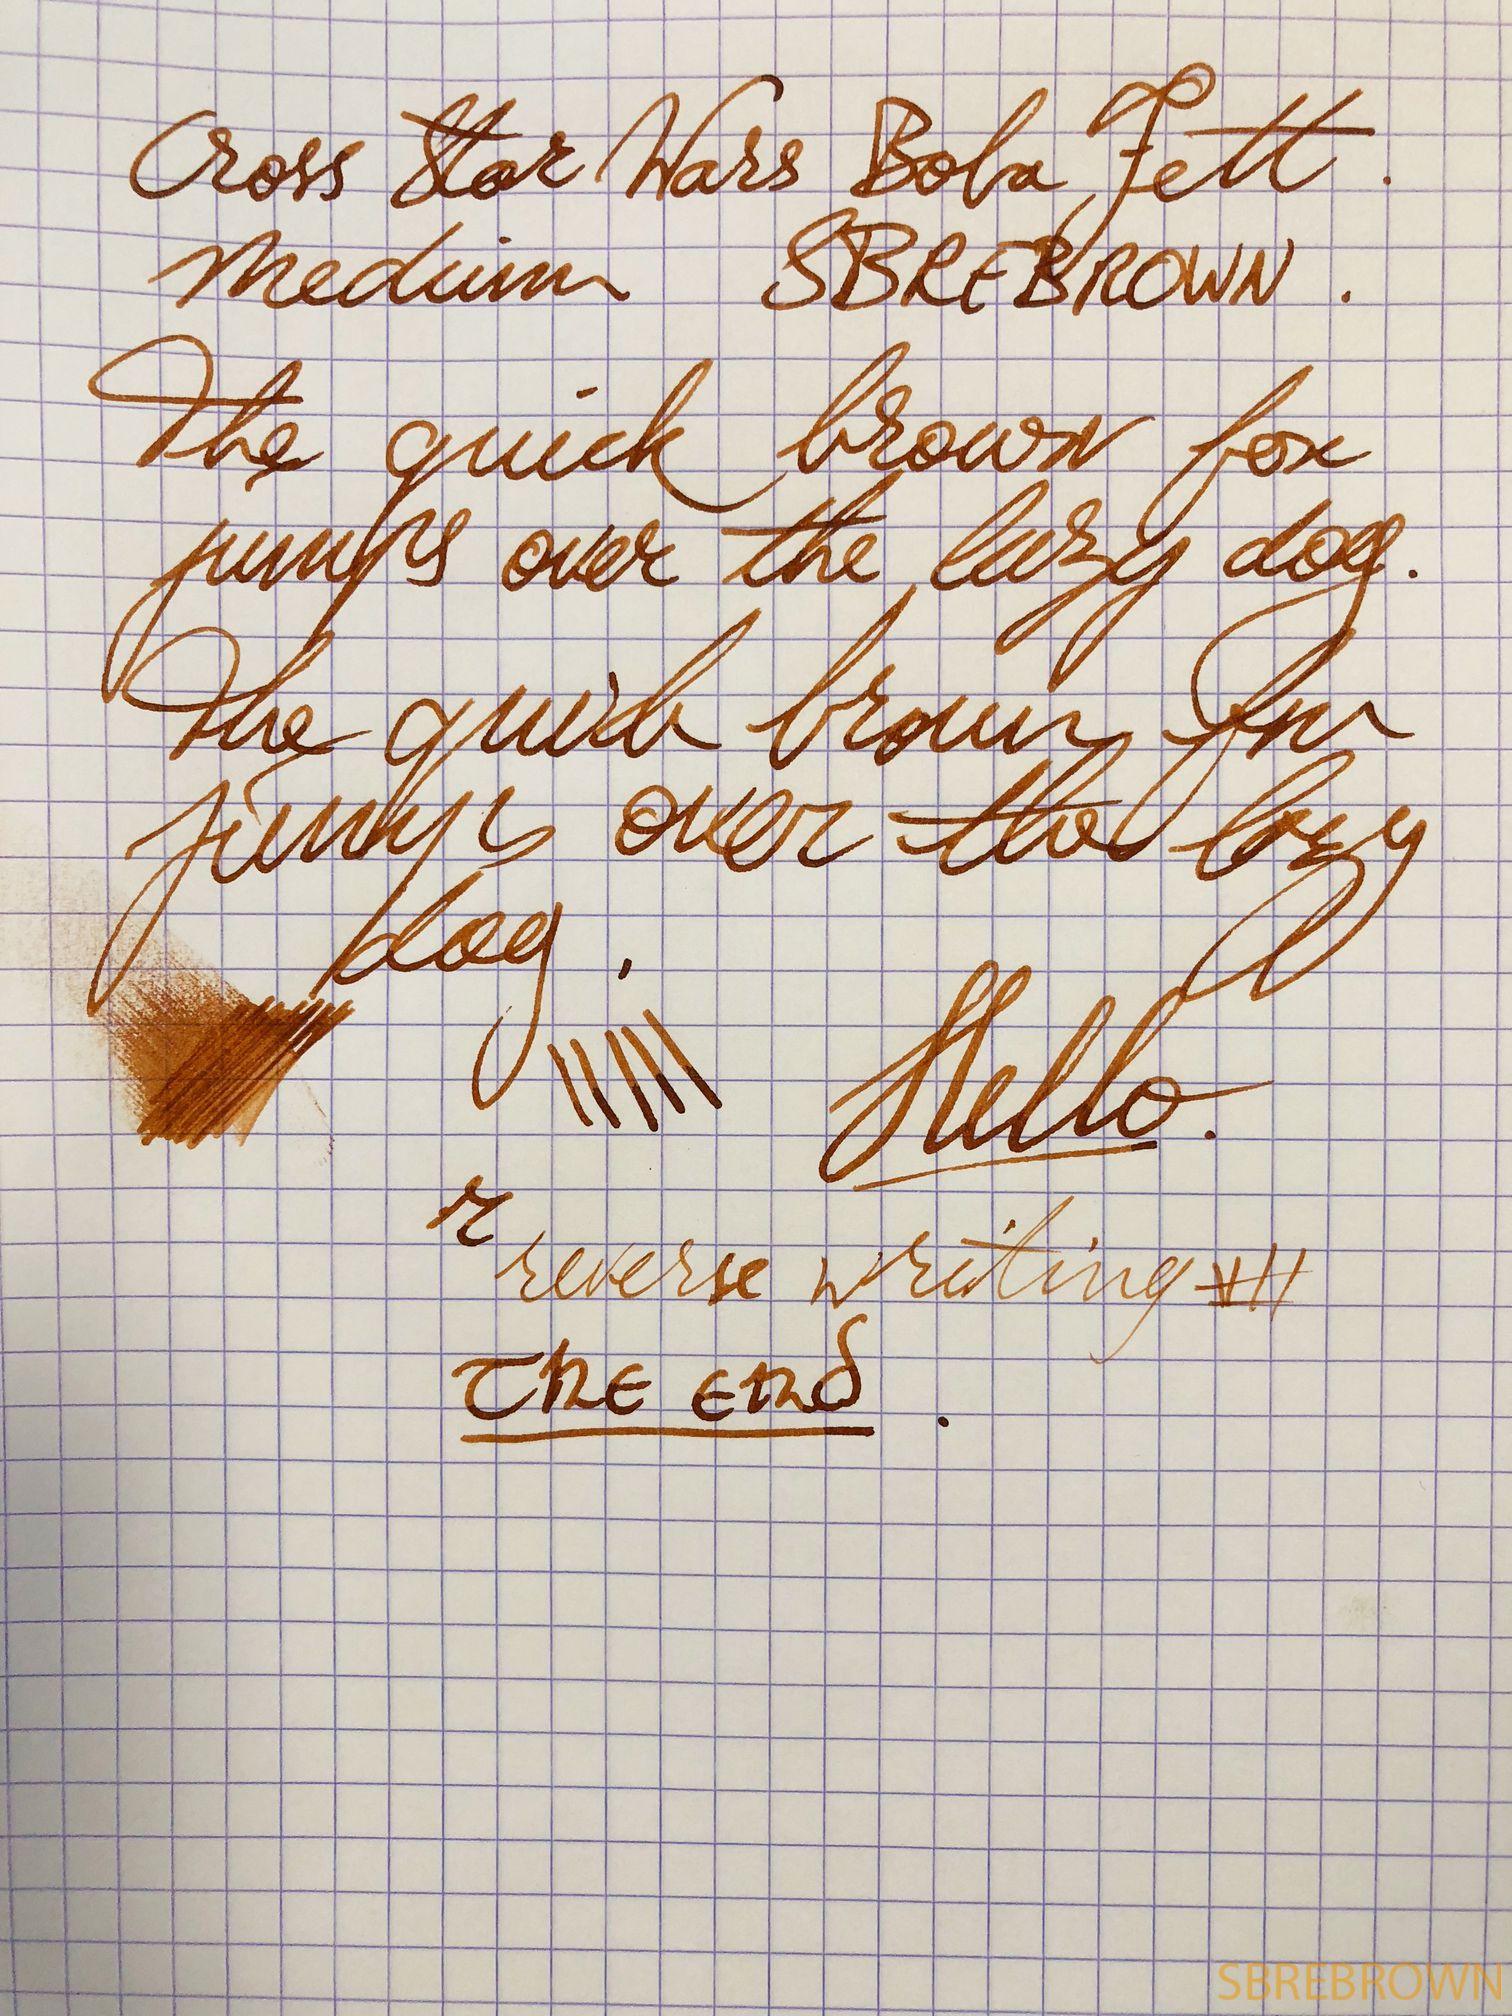 Cross Star Wars Boba Fett.
Medium SBREBROWN.
The quick brown fox
jumps over the lazy dog.
The quick brown fox
jumps over the lazy
dog.
Hello.
r
reverse writing
The end.
SBREBROWN